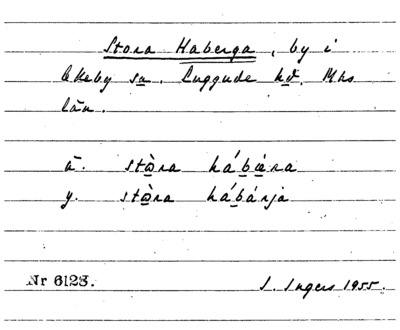 Stora Haberga, by i
Ekeby sn. Luggude hd. Mhs
län.
ä. stòra hábæra
y. stòra hábárja
Nr 6128.
I. Ingers 1955.